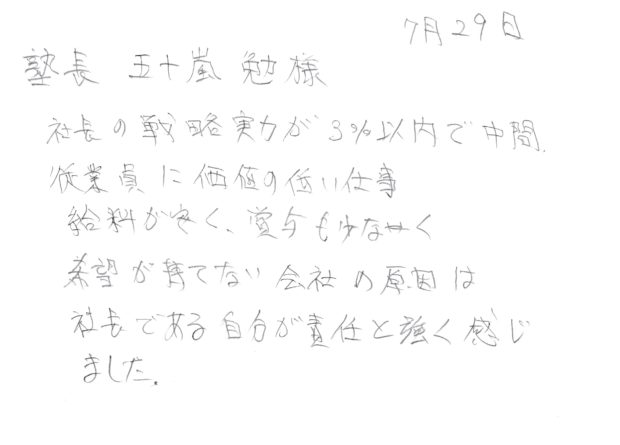 7月29日
塾長 五十嵐 勉様
社長の戦略実力が3%以内で中間.
従業員に価値の低い仕事
給料が安く、賞与も少なく
希望が持てない会社の原因は
社長である自分が責任と強く感じ
ました.